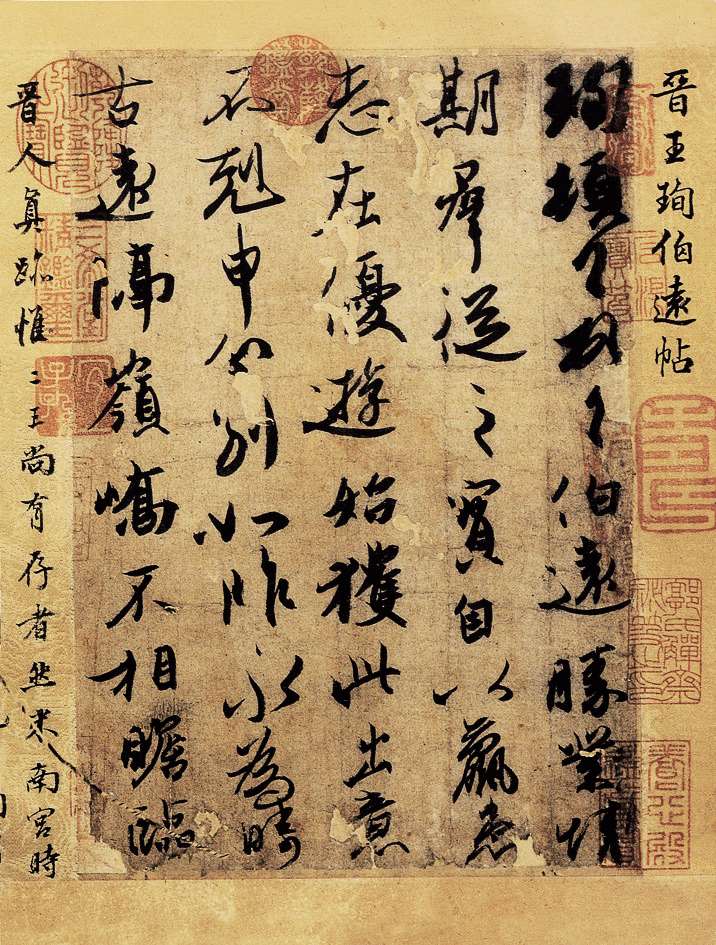 晉王珣伯遠帖
珣頓首頓首伯遠勝業情
期羣從之寳自以羸患
志在優遊始獲此出意
不剋申分别如昨永為疇
古遠隔嶺嶠不相瞻臨
晉人真跡惟二王尚有存者然米南宮時